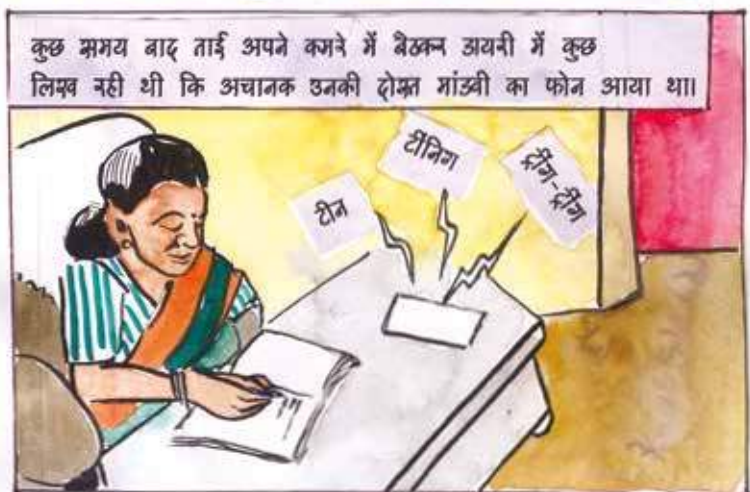 कुछ समय बाद ताई अपने कमरे में बैठकर डायरी में कुछ
लिख रही थी कि अचानक उनकी दोस्त मांडवी का फोन आया था।
टीन
टींनिग
ट्रींग-ट्रींग